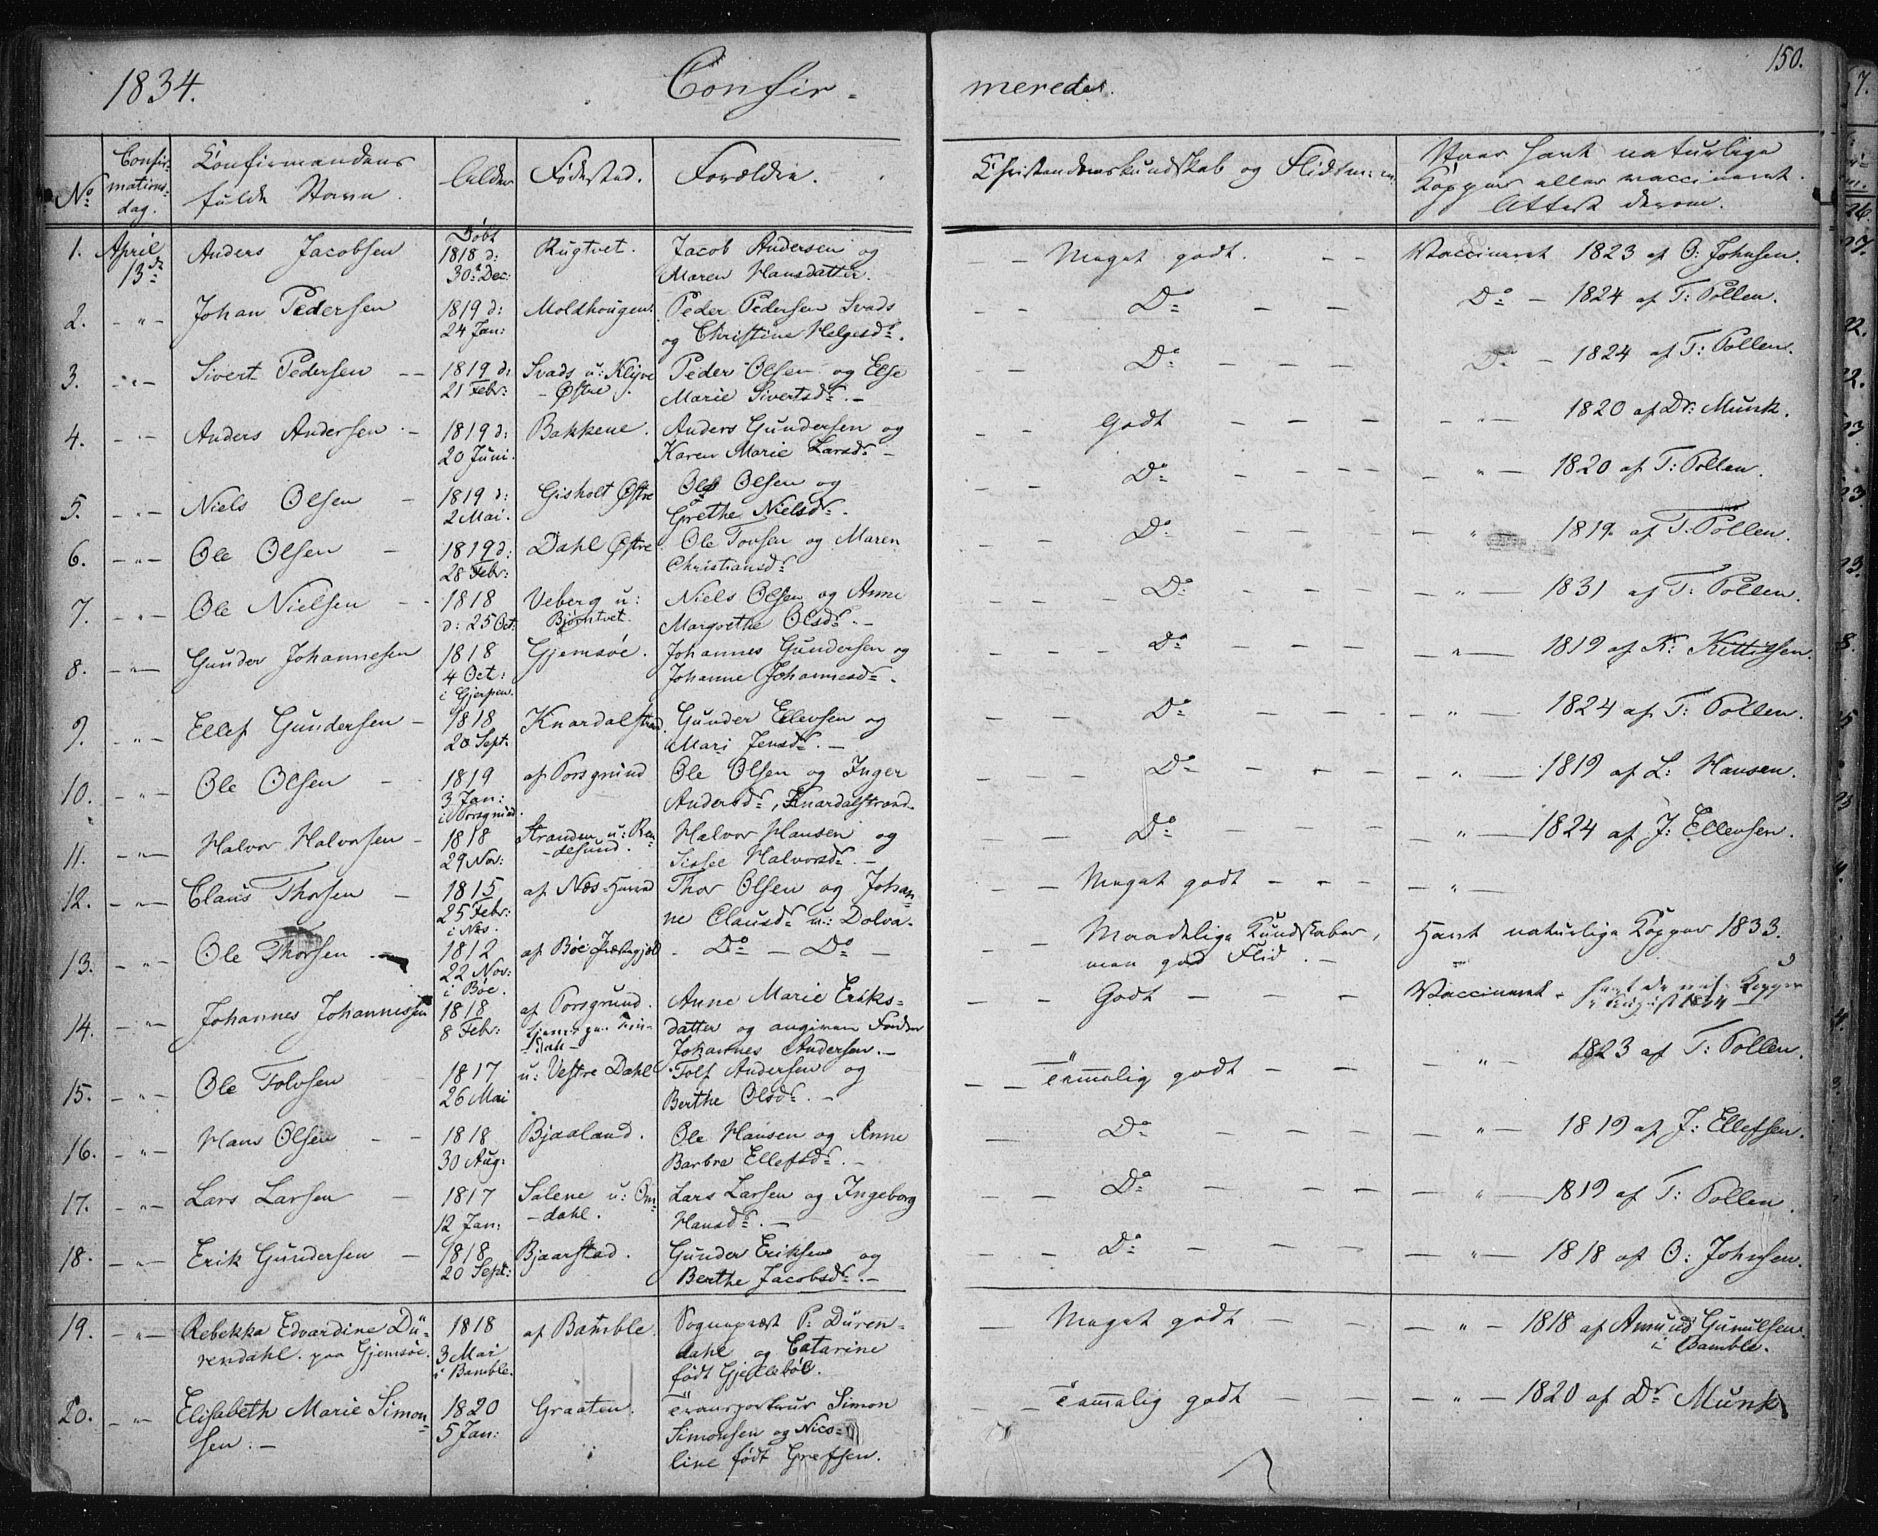 150.
1834. Confir-
meredes.
No
Confir-
mations-
dag.
Confirmandens
fulde Navn.
Alder
Fødested.
Forældre.
Christendomskundskab og Flid
Naar havt naturlige
Kopper eller vaccineret.
Attest derom.
1. April 13de Anders Jacobsen Døbt 1818 d: 30te Dec: Rugtvet. Jacob Andersen og
Maren Hansdatter. Meget godt. Vaccineret 1823 af O: Johnsen.
2. Johan Pedersen 1819 d: 24 Jan: Moldhougen. Peder Pedersen Svads
og Christine Helgesdr. Do 1824 af T: Pollen.
3. Sivert Pedersen 1819 d: 21 Febr: Svads u: Klyve Østre. Peder Olsen og Else
Marie Sivertsdr. Do Do 1824 af T: Pollen.
4. Anders Andersen 1819 d: 20 Juni. Bakkene. Anders Gundersen og
Karen Marie Larsdr. Godt 1820 af Dr: Munk.
5. Niels Olsen 1819 d: 2 Mai. Gisholt Østre Ole Olsen og
Grethe Nielsdr. Do 1820 af T: Pollen.
6. Ole Olsen 1819 d: 28 Febr: Dahl Østre Ole Tovsen og Maren
Christiansdr. Do 1819 af T. Pollen.
7. Ole Nielsen 1818 d: 25 Oct: Veberg u: Bjørntvet. Niels Olsen og Anne
Margrethe Olsdr. Do 1831 af T: Pollen.
8. Gunder Johannesen 1818 4 Oct: i Gjerpen. Gjemsöe. Johannes Gundersen og
Johanne Johannesdr. Do 1819 af K: Kittilsen.
9. Ellef Gundersen 1818 20 Sept: Knardalstrand. Gunder Ellevsen og
Mari Jensdr. Do 1824 af T: Pollen.
10. Ole Olsen 1819 3 Jan: i Porsgrund. af Porsgrund Ole Olsen og Inger
Andersdr, Knardalstrand. Do 1819 af L: Hansen.
11. Halvor Halvorsen 1818 29 Nov: Stranden u: Ren-
desund. Halvor Hansen og
Sissel Halvorsdr. Do 1824 af J: Ellevsen.
12. Claus Thorsen 1815 25 Febr: i Næs. af Næs Thor Olsen og Johan-
ne Clausdr u: Dolva. Meget godt
13. Ole Thorsen 1812 22 Nov: i Bøe. af Bøe Præstegjeld. Do Do Maadelige Kundskaber,
men god Flid. Havt naturlige Kopper 1833.
14. Johannes Johannessen 1818 8 Febr: af Porsgrund. Anne Marie Eriks-
datter og angiven Fader
Johannes Andersen. Godt Vaccineret. havt de nat: Kopper
August 1824
15. Ole Tolvsen 1817 26 Mai u: Vestre Dahl Tolf Andersen og
Berthe Olsdr. Temmelig godt 1823 af T: Pollen.
16. Hans Olsen 1818 30 Aug: Bjaaland. Ole Hansen og Anne
Barbra Ellefsdr. Do 1819 af J: Ellefsen.
17. Lars Larsen 1817 12 Jan: Salene u: Om-
dahl. Lars Larsen og Ingeborg
Hansdr. Do 1819 af T: Pollen.
18. Erik Gundersen 1818 20 Sept: Bjaarstad. Gunder Eriksen og
Berthe Jacobsdr. Do 1818 af O: Johnsen.
19. Rebekka Edvardine Dü-
rendahl paa Gjemsöe. 1818 3 Mai i Bamble. af Bamble. Sognepræst P: Düren-
dahl og Catarine
født Gjellebøl. Meget godt 1818 af Amund Gunulsen
i Bamble.
20. Elisabeth Marie Simon-
sen. 1820 5 Jan: Graaten. Transporteur Simon
Simonsen og Nico-
line født Grefsen. Temmelig godt 1820 af Dr Munk